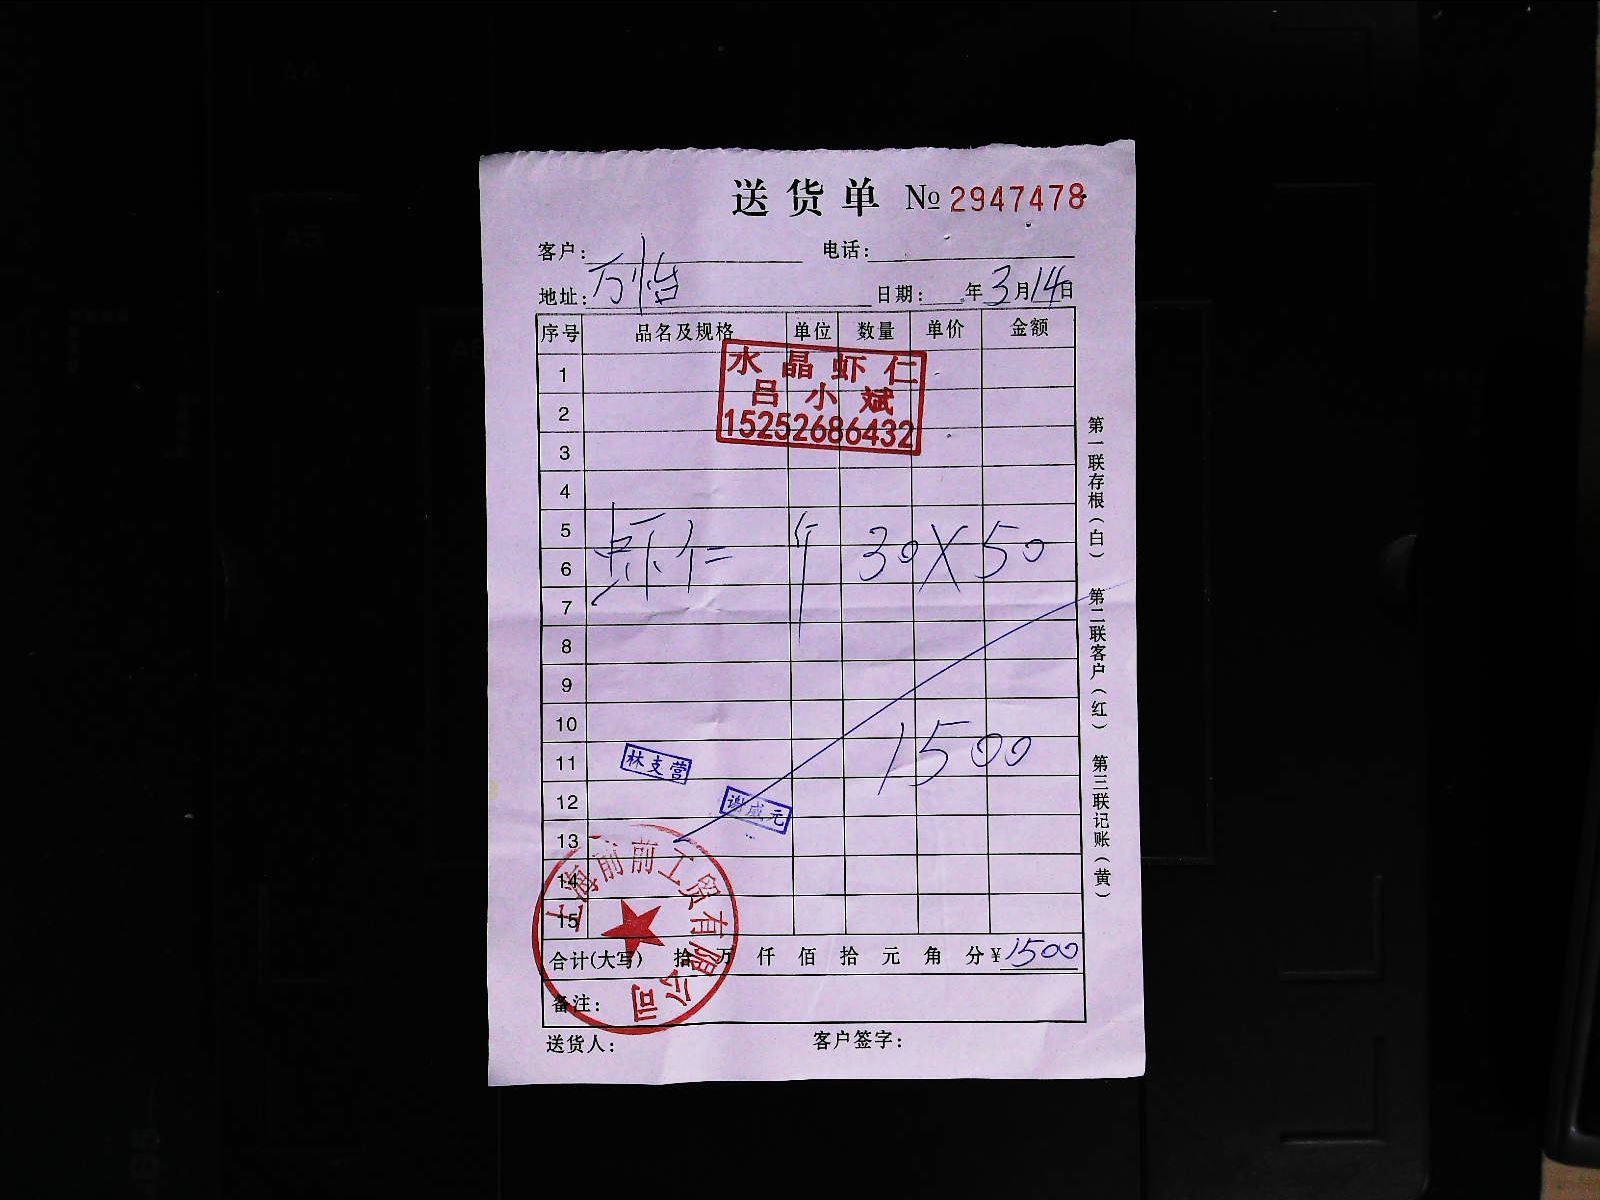 送货单 № 2947478
客户： 万怡 电话：
地址： 日期： 年3月14日
序号 品名及规格 单位 数量 单价 金额
水晶虾仁
吕小斌
15252686432
1
2
3
4
5
6 虾仁 斤 30×50
7
8
9
10
11 1500
林支营
12
谢成元
13
14
15
上海前前工贸有限公司
合计(大写) 拾 万 仟 佰 拾 元 角 分 ¥1500
备注：
送货人： 客户签字：
第一联存根（白） 第二联客户（红） 第三联记账（黄）